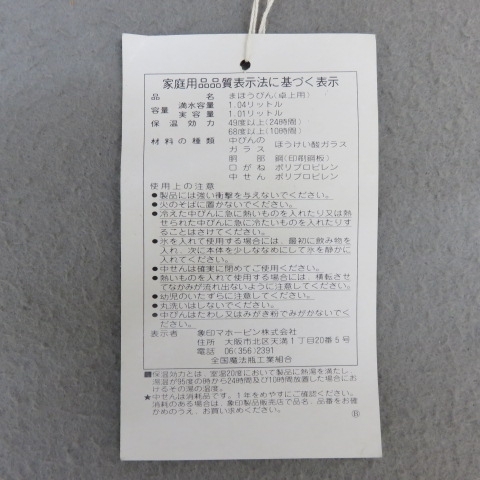 家庭用品品質表示法に基づく表示
品名 まほうびん(卓上用)
容量 満水容量 1.04リットル
実容量 1.01リットル
保温効力 49度以上(24時間)
68度以上(10時間)
材料の種類 中びんの
ガラス ほうけい酸ガラス
胴部 鋼(印刷鋼板)
口がね ポリプロピレン
中せん ポリプロピレン
使用上の注意
●製品には強い衝撃を与えないでください。
●火のそばに置かないでください。
●冷えた中びんに急に熱いものを入れたり又は熱
せられた中びんに急に冷たいものを入れたりす
ることはさけてください。
●氷を入れて使用する場合には、最初に飲み物を
入れ、次に本体を少しななめにして氷を静かに
入れてください。
●中せんは確実に閉めてご使用ください。
●熱いものを入れて使用する場合には、横転させ
てなかみが流れ出ないように注意してください。
●幼児のいたずらに注意してください。
●丸洗いはしないでください。
●中びんはたわし又はみがき粉でみがかないでく
ださい。
表示者 象印マホービン株式会社
住所 大阪市北区天満1丁目20番5号
電話 06(356)2391
全国魔法瓶工業組合
■保温効力とは、室温20度において製品に熱湯を満たし、
湯温が95度の時から24時間及び10時間放置した場合にお
けるその湯の温度。
★中せんは消耗品です。1年をめやすにご確認ください。
消耗のある場合は、象印製品販売店で品名、品番をお確
かめのうえ、お買い求めください。